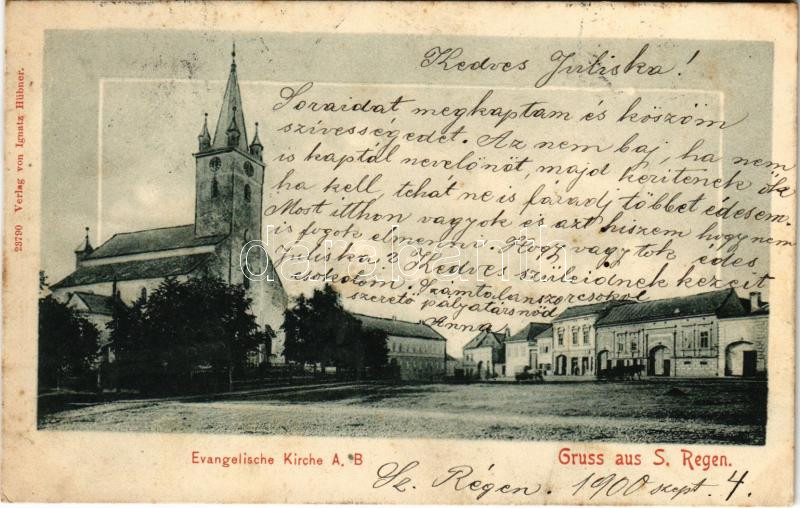 23790 Verlag von Ignatz Hübner.
Kedves Juliska!
Soraidat megkaptam és köszöm
szívességedet. Az nem baj, ha nem
is kaptál nevelőnőt, majd kerítenek ők
ha kell, tehát ne is fáradj többet édesem.
Most itthon vagyok és azt hiszem hogy nem
is fogok elmenni. Hogy vagytok édes
Juliska? Kedves szüleidnek kezeit
csókolom. Számtalanszor csókol
szerető pályatársnőd
Anna
darabanth
Evangelische Kirche A. B
Gruss aus S. Regen.
Sz. Régen. 1900 szept. 4.